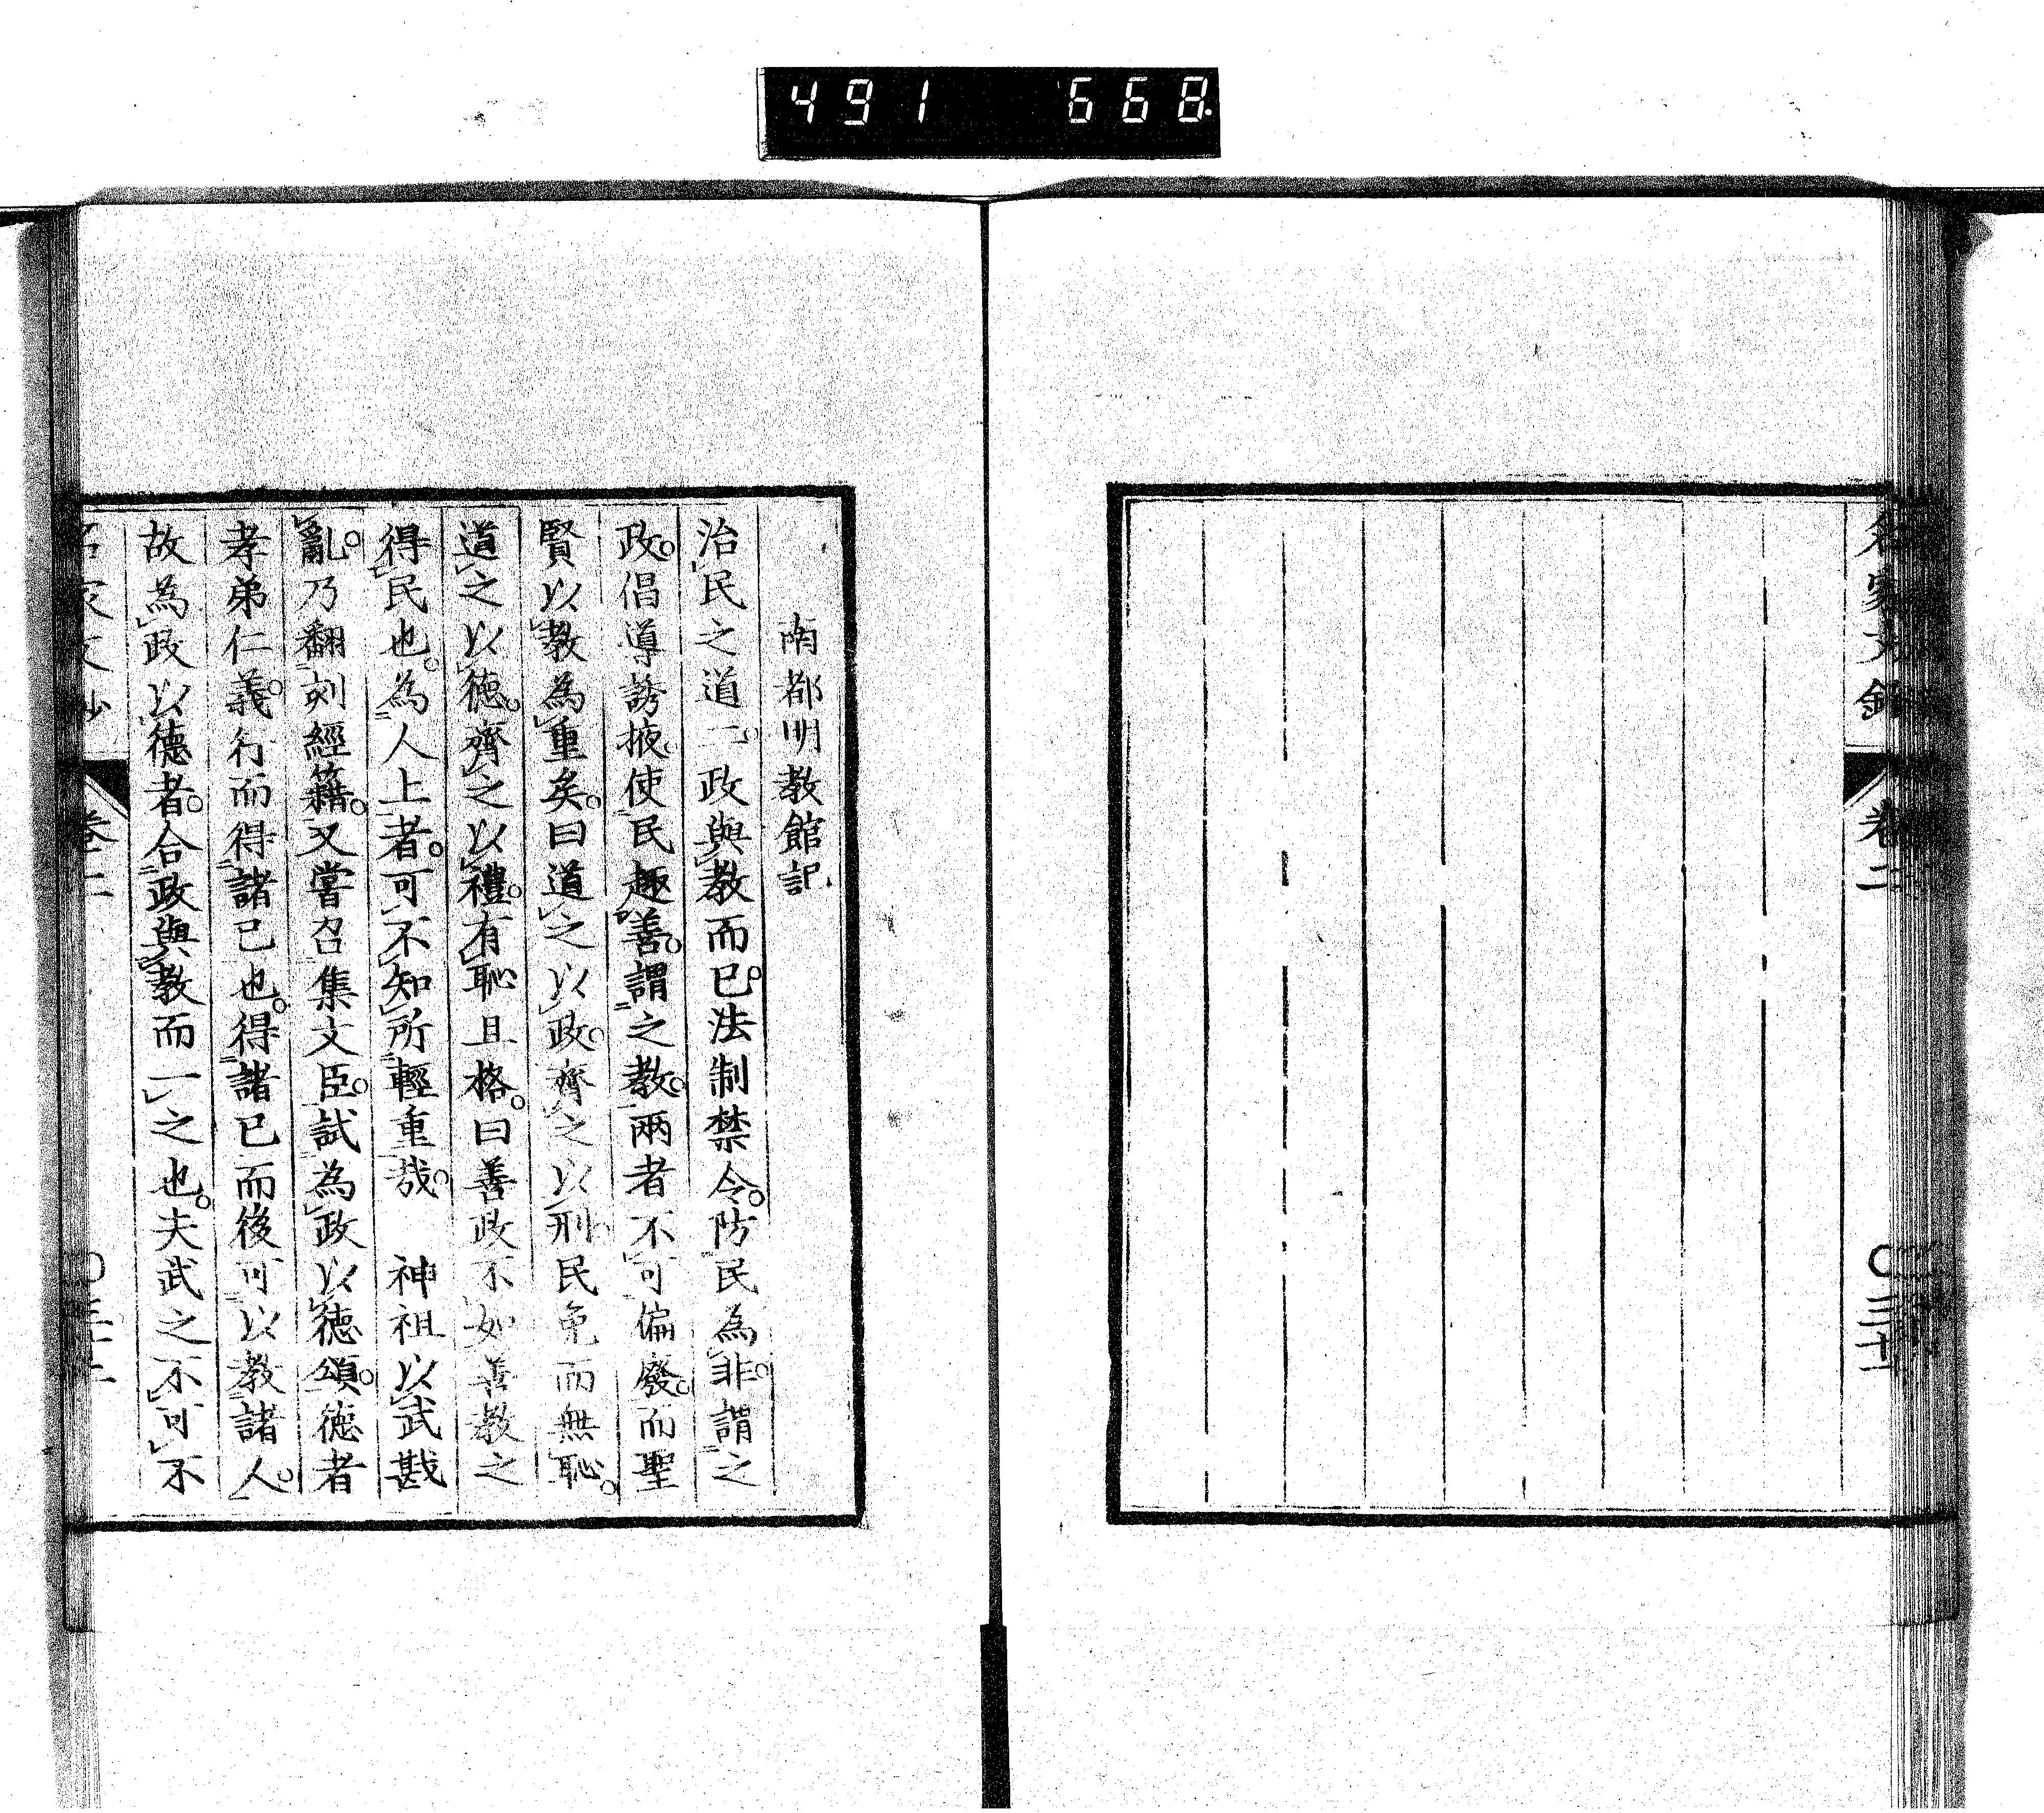 491 668
卷二
南都明教館記
治民之道二。政與教而已。法制禁令。防民為非。謂之
政。倡導誘掖。使民趣善。謂之教。兩者不可偏廢。而聖
賢以教為重矣。曰道之以政。齊之以刑。民免而無恥。
道之以德。齊之以禮。有恥且格。曰善政不如善教之
得民也。為人上者。可不知所輕重哉。 神祖以武戡
亂。乃翻刻經籍。又嘗召集文臣。試為政以德頌。德者
孝弟仁義。行而得諸己也。得諸己而後可以教諸人。
故為政以德者。合政與教而一之也。夫武之不可不
卷二